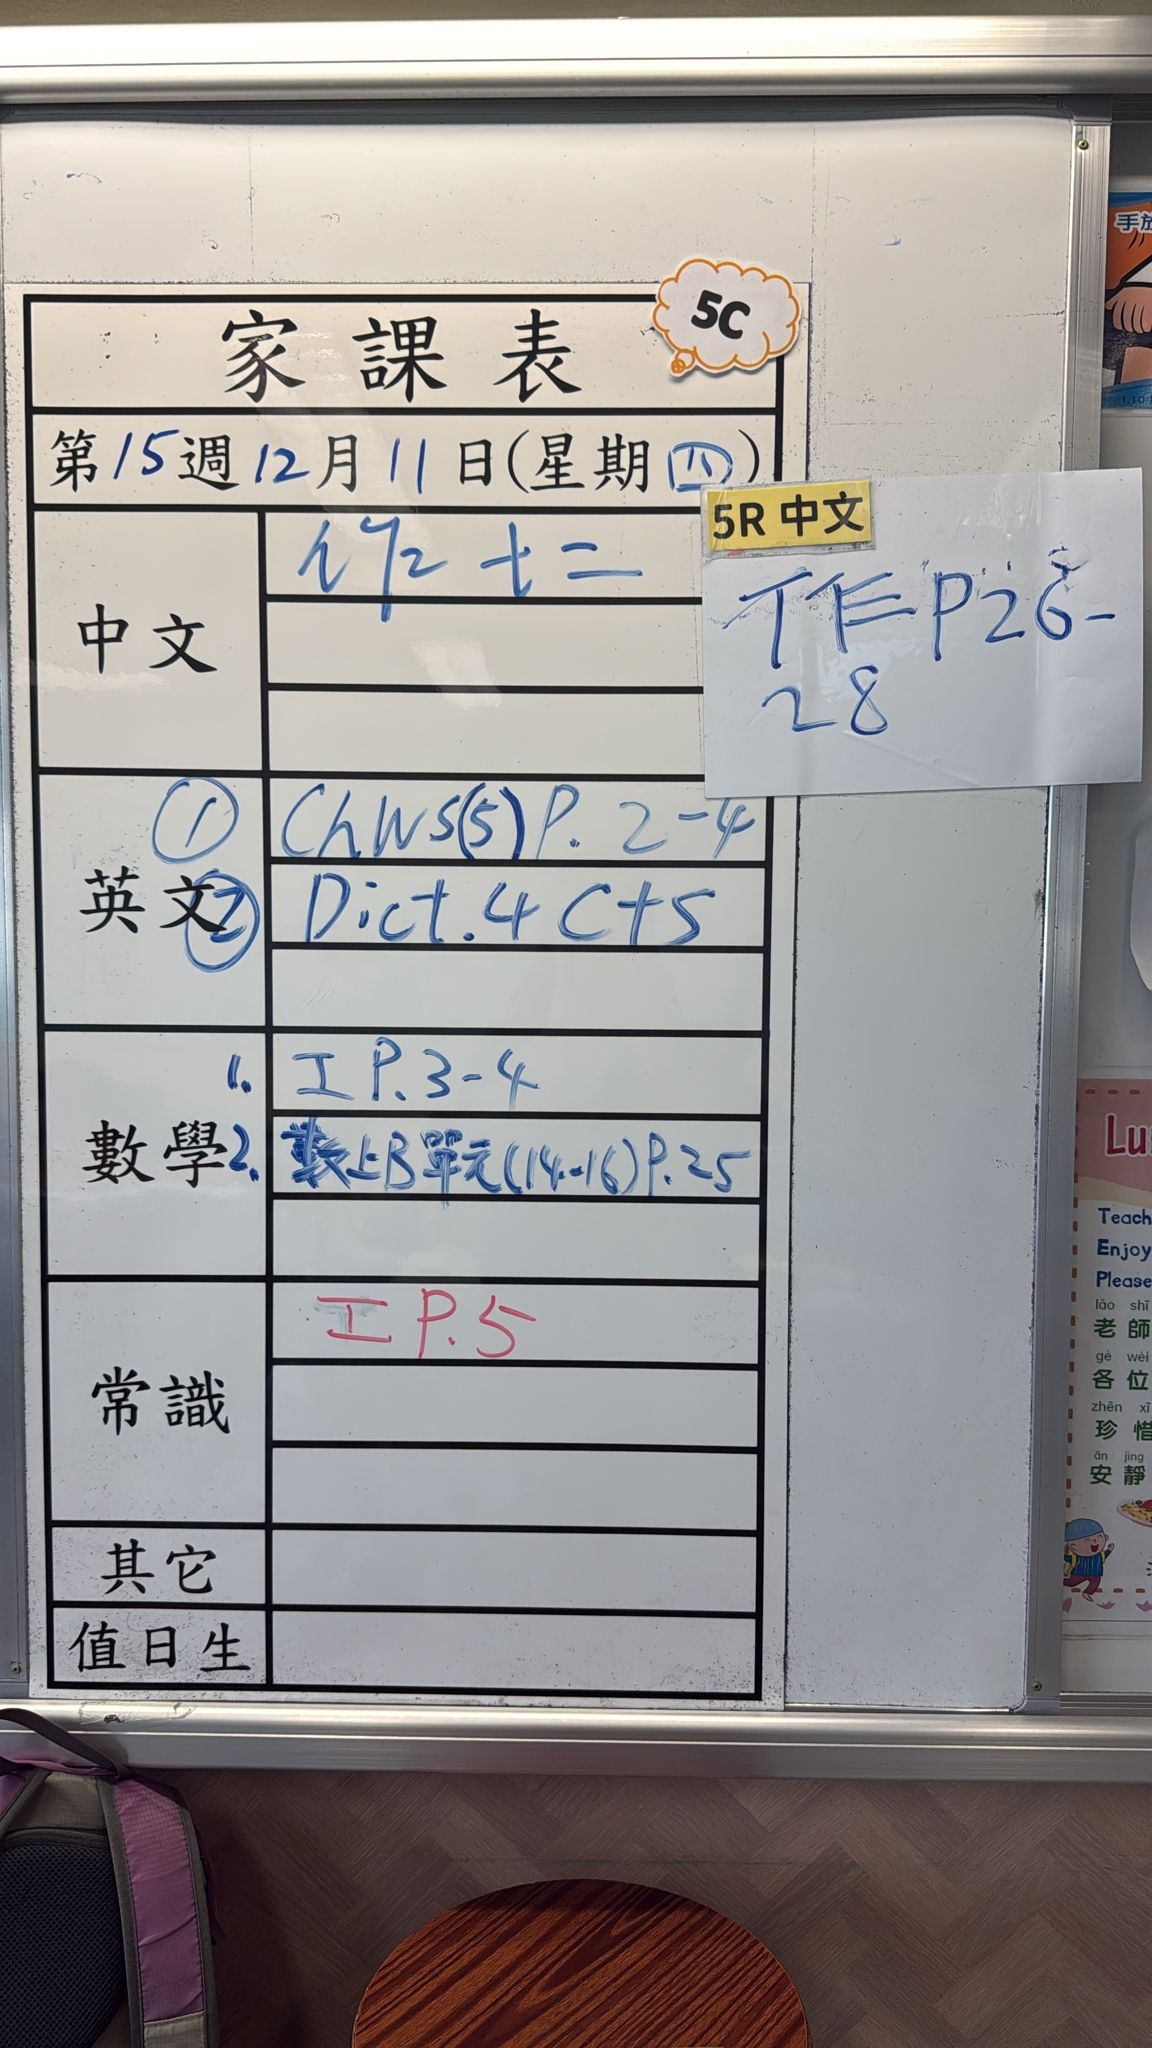 5C
家課表
第15週12月11日(星期四)
5R 中文
中文
十二
P26-
28
英文
① ChWS(5) P. 2-4
② Dict. 4 C+S
數學
1. 工 P.3-4
2. 上B單元(14-16)P.25
常識
工 P.5
其它
值日生
手放
Lu
Teach
Enjoy
Please
lǎo shī
老師
gè wèi
各位
zhēn xī
珍惜
ān jìng
安靜